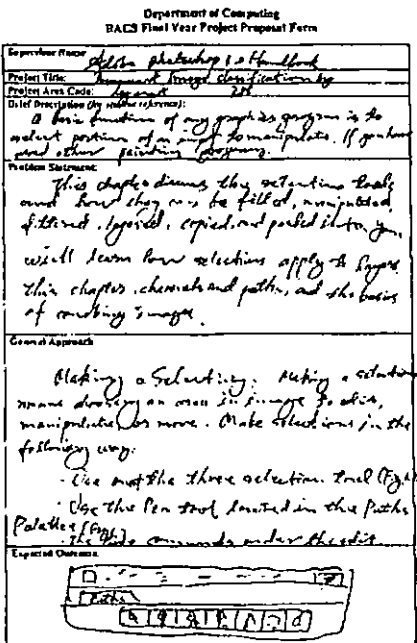 Department of Computing
BACS Final Year Project Proposal Form
Supervisor Name: Adobe Photoshop Handbook
Project Title: Image Clasification by
Project Area Code:
Brief Description (by reference):
A basic function of any graphics program is to
select portions of an image to manipulate. If you have
used other painting programs.
Problem Statement:
This chapter discuss the selections tools
and how they can be filled, manipulated,
filtered, layered, copied, and pasted
will learn how selections apply to layers
this chapter, channels and paths, and the basics
of combining images.
General Approach
Making a Selecting: Making a selection
means drawing an area in image to edit,
manipulate, or move. Make selections in the
following way:
- Use the three selection tool (Fig.
- Use the Pen tool located in the Paths
Palette (Fig
- The commands under the edit
Expected Outcome
Paths